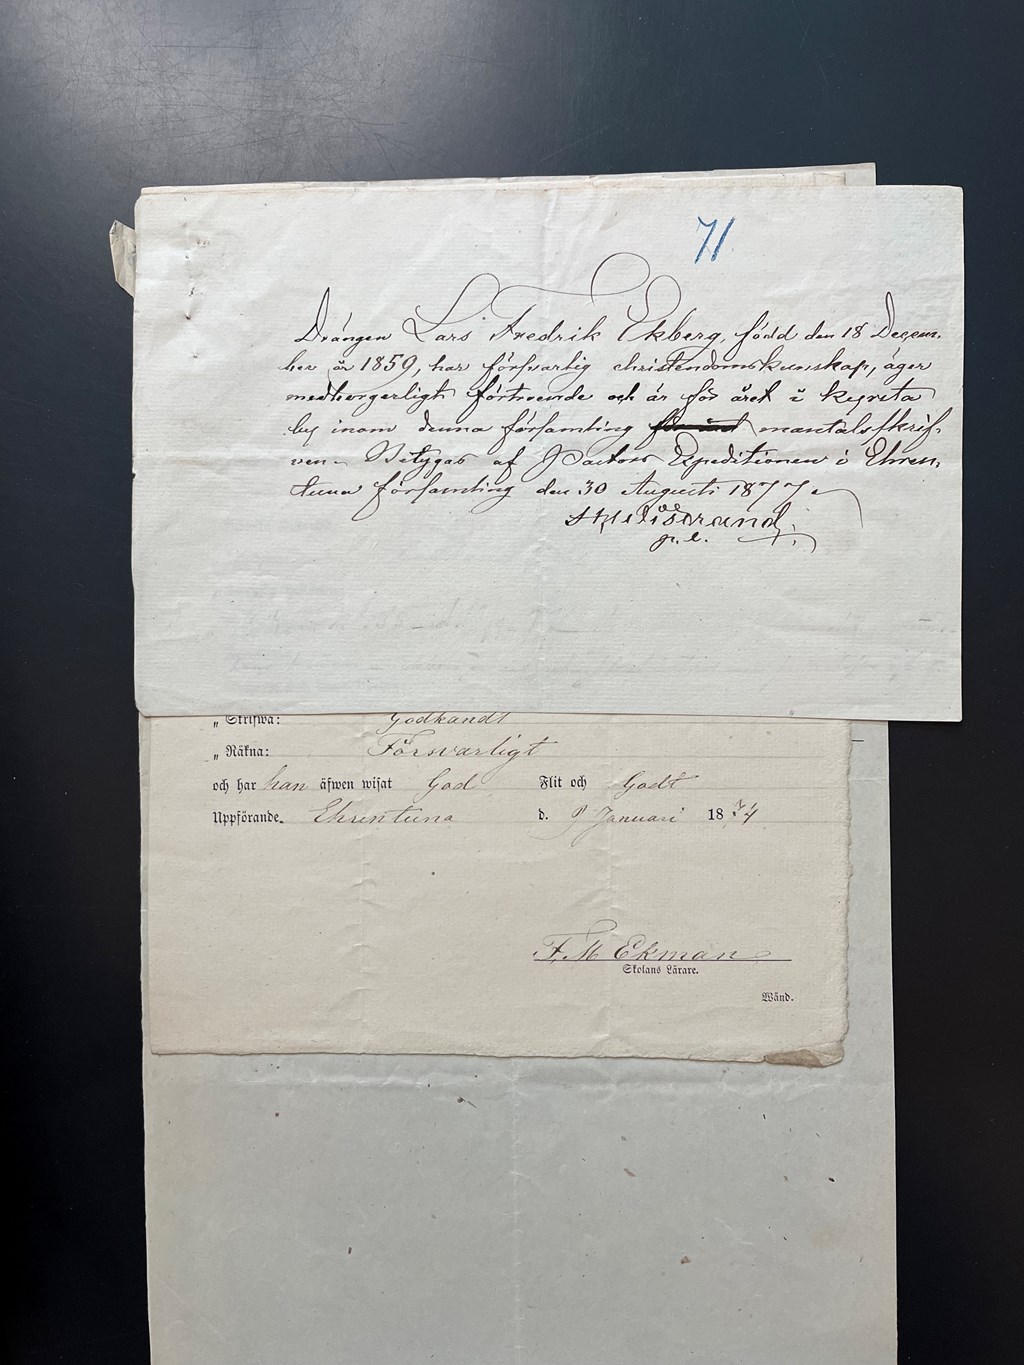 71.
Drängen Lars Fredrik Ekberg, född den 18 Decem-
ber år 1859, har försvarlig christendomskunskap, äger
medborgerligt förtroende och är för året i kyrsta
by inom denna församling mantalsskrif-
ven. Betygas af Pastors Expeditionen i Ehren-
tuna församling den 30 Augusti 1877.
p. l.
„ Skrifwa: Godkändt
„ Räkna: Försvarligt
och har han äfwen wisat God Flit och Godt
Uppförande. Ehrentuna d. 9 Januari 1874
F. M Ekman
Skolans Lärare.
Wänd.